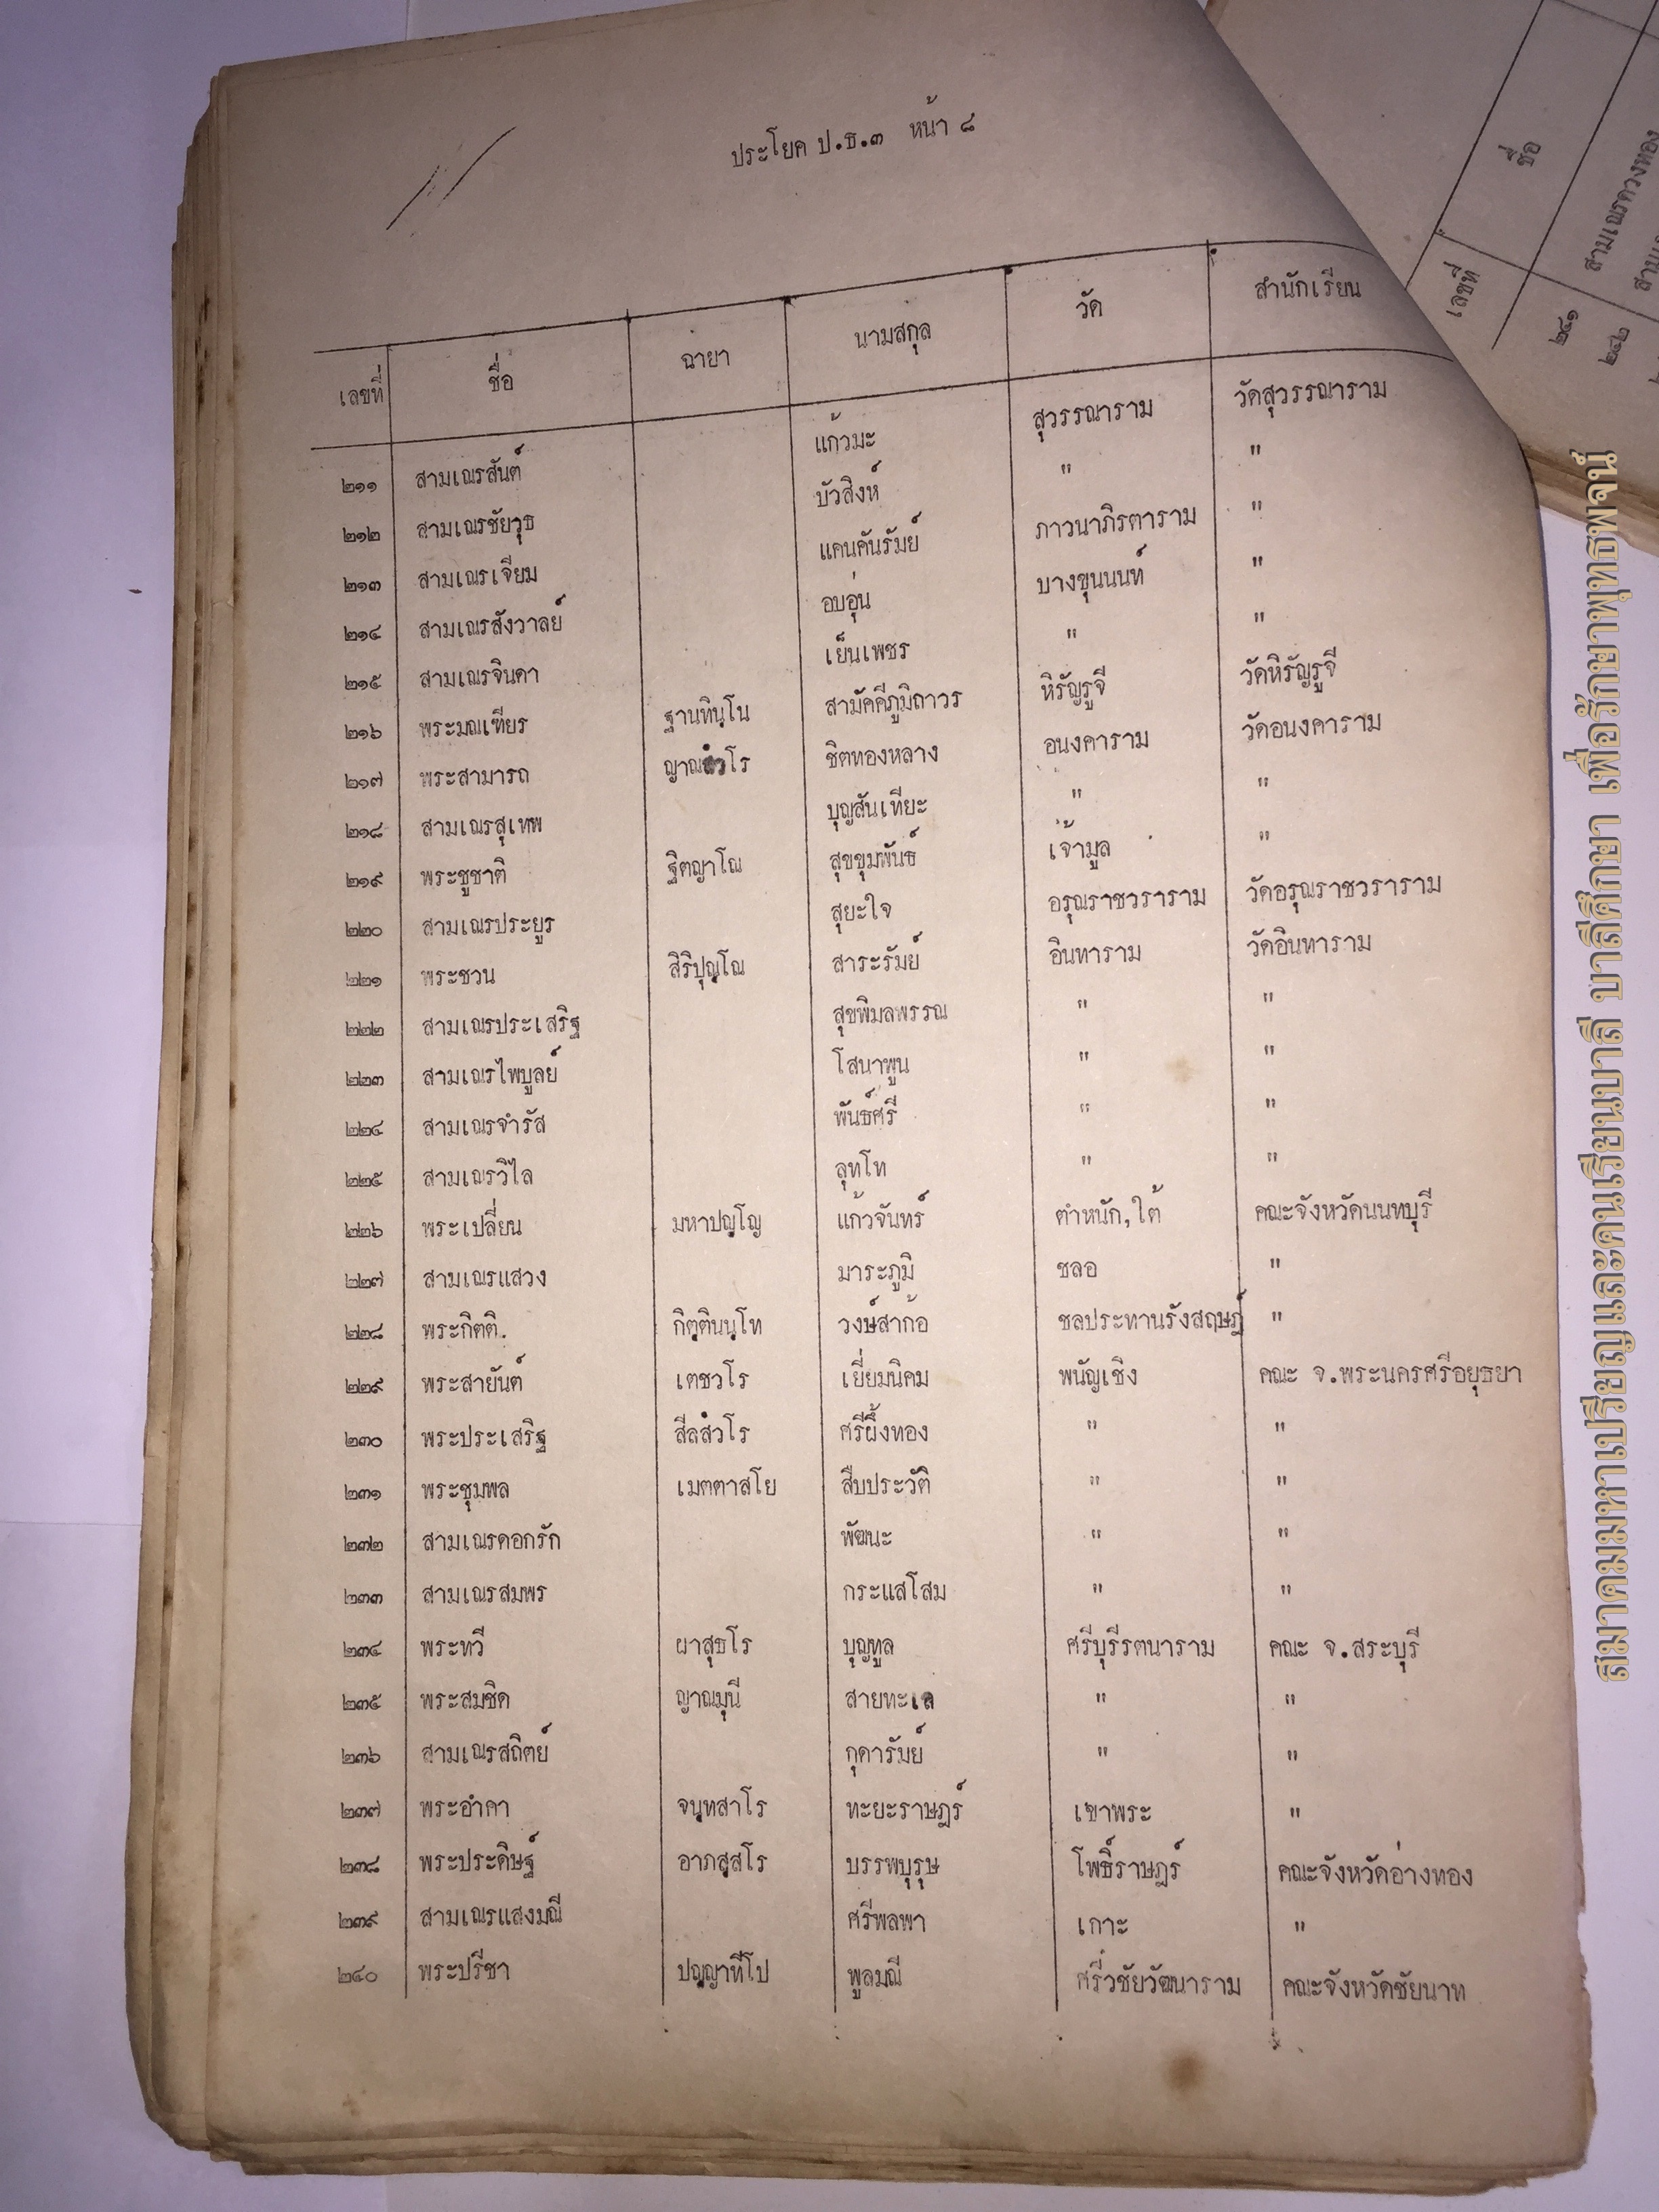 ประโยค ป.ธ.๓ หน้า ๘
เลขที่ ชื่อ ฉายา นามสกุล วัด สำนักเรียน
๒๑๑ สามเณรสันต์ แก้วมะ สุวรรณาราม วัดสุวรรณาราม
๒๑๒ สามเณรชัยวุธ บัวสิงห์ " "
๒๑๓ สามเณรเจียม แคนคันรัมย์ ภาวนาภิรตาราม "
๒๑๔ สามเณรสังวาลย์ อบอุ่น บางขุนนนท์ "
๒๑๕ สามเณรจินดา เย็นเพชร " "
๒๑๖ พระมณเฑียร ฐานทินฺโน สามัคคีภูมิถาวร หิรัญรูจี วัดหิรัญรูจี
๒๑๗ พระสามารถ ญาณสํวโร ชิตทองหลาง อนงคาราม วัดอนงคาราม
๒๑๘ สามเณรสุเทพ บุญสันเทียะ " "
๒๑๙ พระชูชาติ ฐิตญาโณ สุขขุมพันธ์ เจ้ามูล "
๒๒๐ สามเณรประยูร สุยะใจ อรุณราชวราราม วัดอรุณราชวราราม
๒๒๑ พระชวน สิริปุญฺโณ สาระรัมย์ อินทาราม วัดอินทาราม
๒๒๒ สามเณรประเสริฐ สุขพิมลพรรณ " "
๒๒๓ สามเณรไพบูลย์ โสนาพูน " "
๒๒๔ สามเณรจำรัส พันธ์ศรี " "
๒๒๕ สามเณรวิไล ลุทโท " "
๒๒๖ พระเปลี่ยน มหาปญฺโญ แก้วจันทร์ ตำหนัก,ใต้ คณะจังหวัดนนทบุรี
๒๒๗ สามเณรแสวง มาระภูมิ ชลอ "
๒๒๘ พระกิตติ. กิตฺตินนฺโท วงษ์สาก้อ ชลประทานรังสฤษฎ์ "
๒๒๙ พระสายันต์ เตชวโร เยี่ยมนิคม พนัญเชิง คณะ จ.พระนครศรีอยุธยา
๒๓๐ พระประเสริฐ สีลสํวโร ศรีผึ้งทอง " "
๒๓๑ พระชุมพล เมตตาสโย สืบประวัติ " "
๒๓๒ สามเณรดอกรัก พัฒนะ " "
๒๓๓ สามเณรสมพร กระแสโสม " "
๒๓๔ พระทวี ผาสุธโร บุญทูล ศรีบุรีรตนาราม คณะ จ.สระบุรี
๒๓๕ พระสมชิด ญาณมุนี สายทะเล " "
๒๓๖ สามเณรสถิตย์ กุดารัมย์ " "
๒๓๗ พระอำคา จนฺทสาโร ทะยะราษฎร์ เขาพระ "
๒๓๘ พระประดิษฐ์ อาภสฺสโร บรรพบุรุษ โพธิ์ราษฎร์ คณะจังหวัดอ่างทอง
๒๓๙ สามเณรแสงมณี ศรีพลพา เกาะ "
๒๔๐ พระปรีชา ปญฺญาทีโป พูลมณี ศรีวิชัยวัฒนาราม คณะจังหวัดชัยนาท
เลขที่ ชื่อ
๒๔๑ สามเณรดวงทอง
๒๔๒
สมาคมมหาเปรียญและคนเรียนบาลี บาลีศึกษา เพื่อรักษาพุทธพจน์